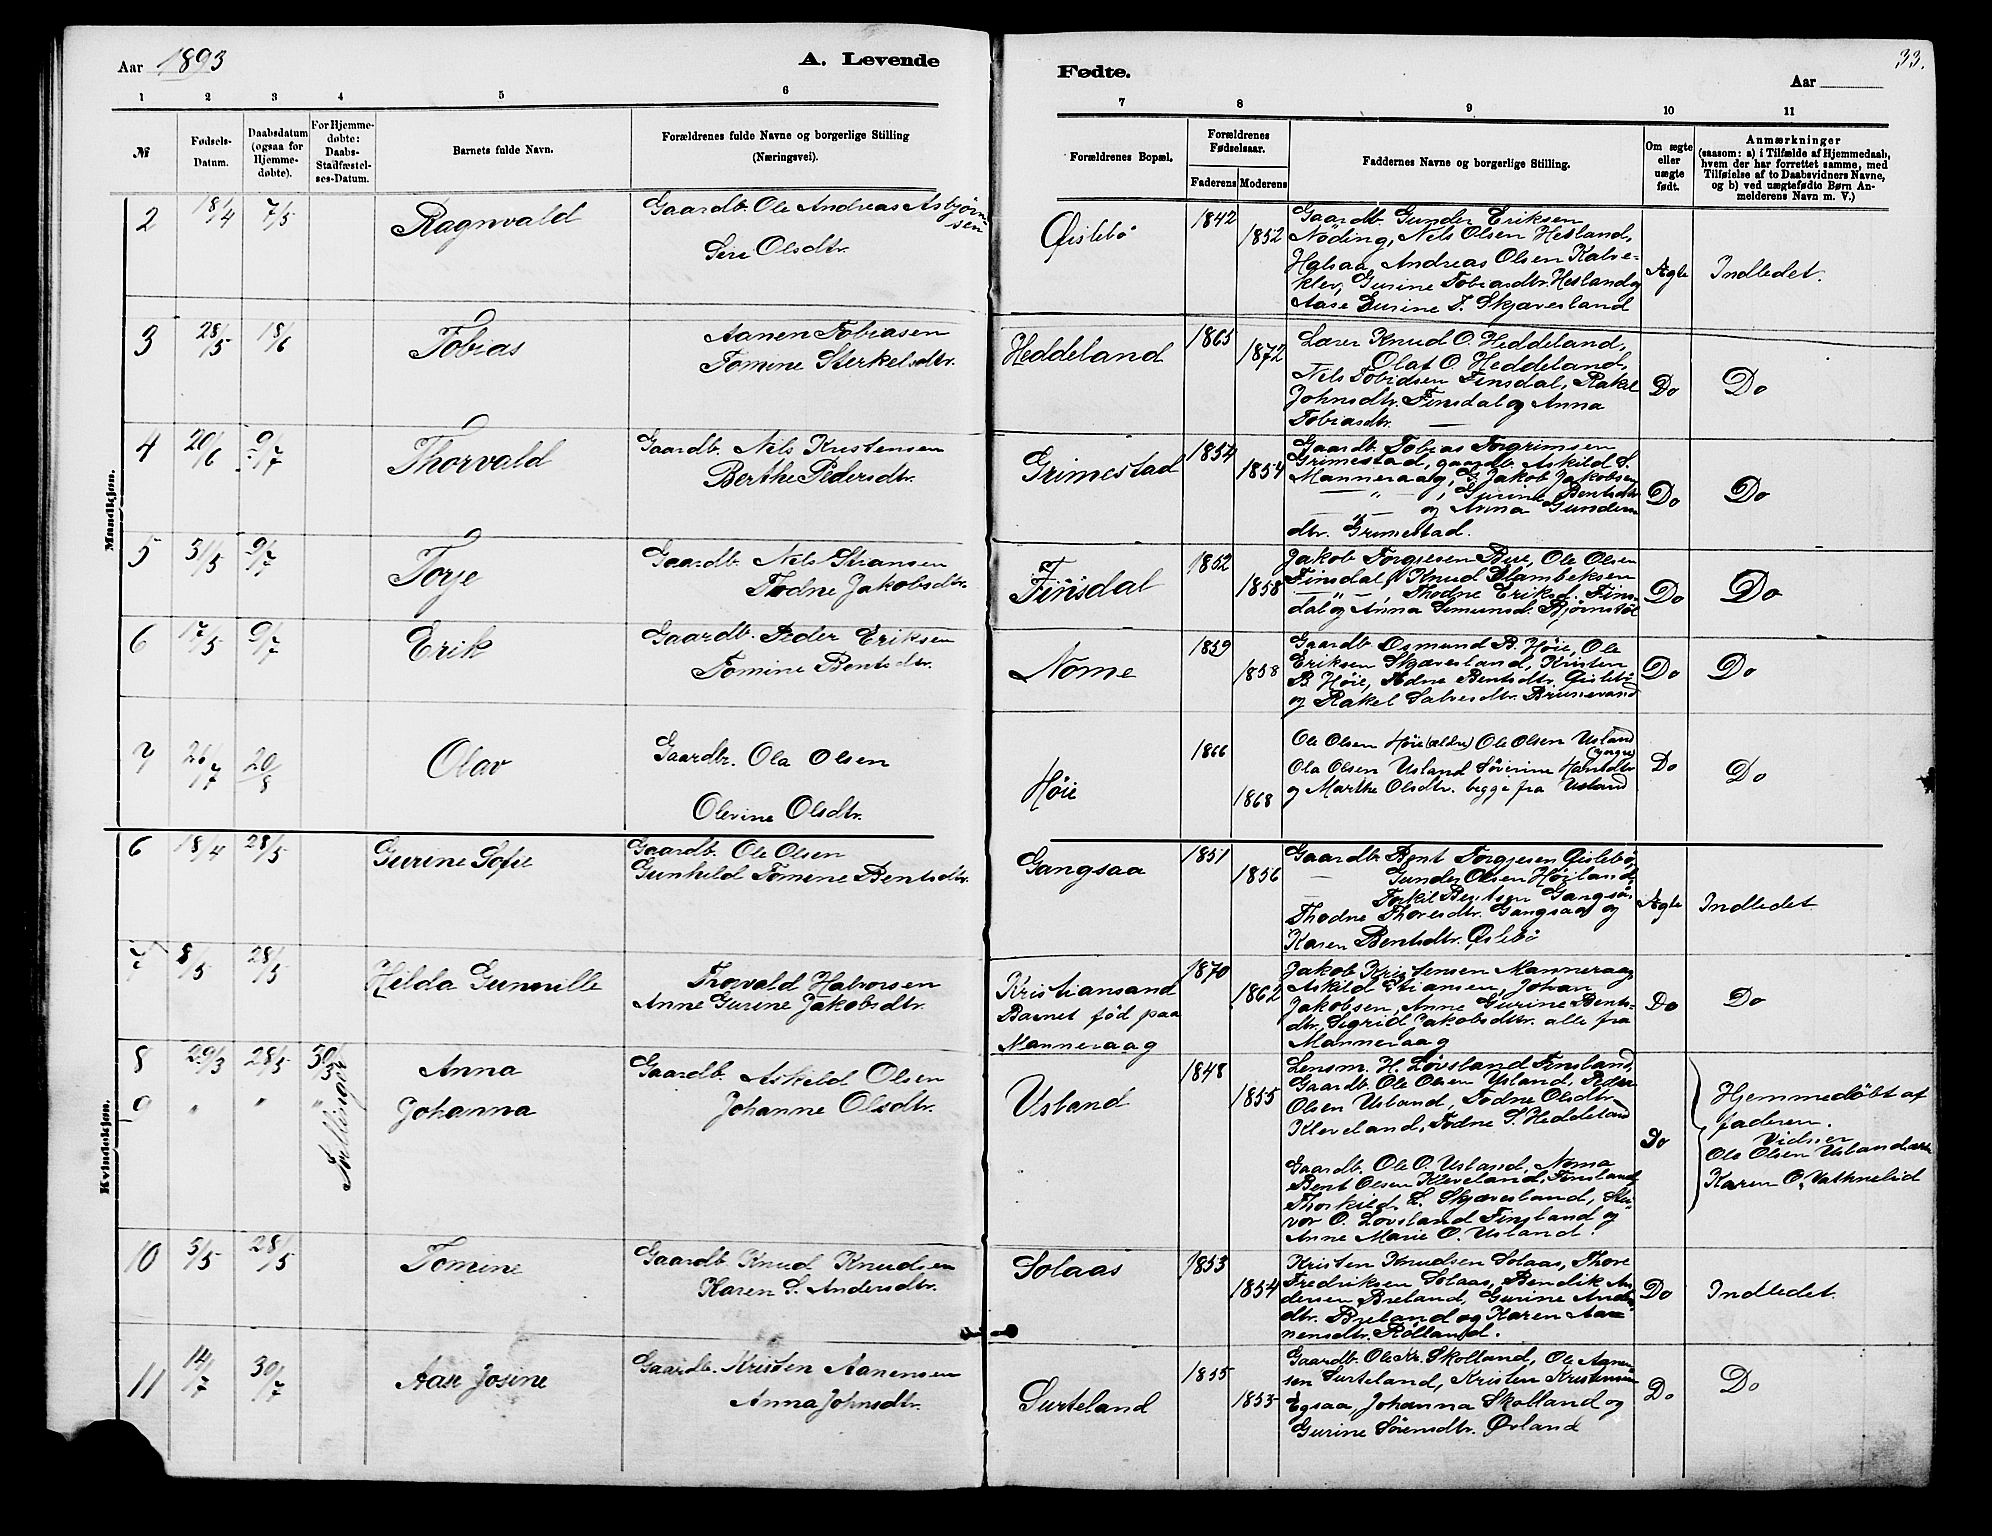 Aar 1893
A. Levende
Fødte.
Aar
33.
1 2 3 4 5 6 7 8 9 10 11
№
Fødsels-
Datum.
Daabsdatum
(ogsaa for
Hjemme-
døbte).
For Hjemme-
døbte:
Daabs-
Stadfæstel-
ses-Datum.
Barnets fulde Navn.
Forældrenes fulde Navne og borgerlige Stilling
(Næringsvei).
Forældrenes Bopæl.
Forældrenes
Fødselsaar.
Faderens Moderens
Faddernes Navne og borgerlige Stilling.
Om ægte
eller
uægte
født.
Anmærkninger
(saasom: a) i Tilfælde af Hjemmedaab,
hvem der har forrettet samme, med
Tilføielse af to Daabsvidners Navne,
og b) ved uægtefødte Børn An-
melderens Navn m. V.)
Mandkjøn.
2 18/4 7/5 Ragnvald
Gaardb. Ole Andreas Asbjørn-
sen
Siri Olsdtr.
Øislebö 1842 1852
Gaardb. Gunder Eriksen
Nöding, Nils Olsen Hesland,
Halsaa, Andreas Olsen Kalve-
klev, Gurine Tobiasdtr. Hesland og
Aase Gurine T. Skjævesland
Ægte Indledet.
3 28/5 18/6 Tobias
Aanen Tobiasen
Tomine Sterkelsdtr.
Heddeland 1865 1872
Lærer Knud O. Heddeland,
— Olaf O. Heddeland,
Nils Tobiasen Finsdal, Rakel
Johnsdtr. Finsdal og Anna
Tobiasdtr. —
Do Do
4 20/6 9/7 Thorvald
Gaardb. Nils Kristensen
Berthe Pedersdtr.
Grimestad 1854 1854
Gaardb. Tobias Torgrimsen
Grimestad, gaardb. Askild S.
Manneraag, G. Jakob Jakobsen
— " —, Gurine Bentsdtr
og Anna Gunders
dtr. Grimestad.
Do Do
5 31/5 9/7 Torje
Gaardb. Nils Stiansen
Todne Jakobsdtr.
Finsdal 1852 1858
Jakob Torgiesen Bue, Ole Olsen
Finsdal, Knud Slambeksen
— " —, Thodne Eriksd. Fins-
dal og Anna Simunsd. Bjørnstöl
Do Do
6 17/5 9/7 Erik
Gaardb. Peder Eriksen
Tomine Bentsdtr.
Nome 1859 1858
Gaardb Osmund B. Höie, Ole
Eriksen Skjævesland, Kristen
B. Höie, Adne Bentsdtr. Øislebö
og Rakel Salvesdtr. Brunevand
Do Do
7 26/7 20/8 Olav
Gaardbr. Ola Olsen
Olevine Olsdtr.
Höie 1866 1868
Ole Olsen Höie (ældre) Ole Olsen Usland
(yngre)
Ola Olsen Usland Sörine Hansdtr
og Marthe Olsdtr. begge fra Usland
Do Do
Kvindekjøn.
6 18/4 28/5 Gurine Sofie
Gaardb. Ole Olsen
Gunhild Tomine Bentsdtr.
Gangsaa 1851 1856
Gaardb. Bent Torgjesen Øislebö,
— Gunder Olsen Höiland,
Torkil Bentsen Gangsaa,
Thodne Thoresdtr. Gangsaa og
Karen Bentsdtr. Øslebö
Ægte Indledet.
7 8/5 28/5 Hilda Gunnille
Thorvald Halvorsen
Anne Gurine Jakobsdtr.
Kristiansand
Barnet fød paa
Manneraag
1870 1862
Jakob Kristensen Manneraag
Askild Stiansen, Johan
Jakobsen, Anne Gurine Bents-
dtr, Sigrid Jakobsdtr. alle fra
Manneraag
Do Do
8 29/3 28/5 30/5 Anna
9 " " " Johanna
Gaardb. Askild Olsen
Johanne Olsdtr.
Usland 1848 1855
Lensm. H. Lövsland Finsland,
Gaardb. Ole Olsen Usland, Peder
Olsen Usland, Todne Olsdtr
Kleveland, Todne S. Heddeland
Gaardb. Ole O. Usland, Noma
Bent Olsen Kleveland, Finsland,
Thorkild L. Skjævesland, Sle-
vor O. Lovsland Finsland og
Anne Marie O. Usland.
Do
Hjemmedöbt af
faderen.
Vidner
Ole Olsen Usland
Karen O. Vathnelid
10 5/5 28/5 Tomine
Gaardb. Knud Knudsen
Karen S. Andersdtr.
Solaas 1853 1854
Kristen Knudsen Solaas, Thore
Fredriksen Solaas, Bendik An-
dersen Breland, Gurine Anders
dtr. Breland og Karen Aa-
nensdtr. Rölland.
Do Indledet.
11 14/7 30/7 Aase Josine
Gaardb. Kristen Aanensen
Anna Johnsdtr.
Surteland 1855 1853
Gaardb. Ole Kr. Skolland, Ole Aanen-
sen Surteland, Kristen Kristensen
Egsaa, Johanna Skolland og
Gurine Sörensdtr. Øvland
Do Do